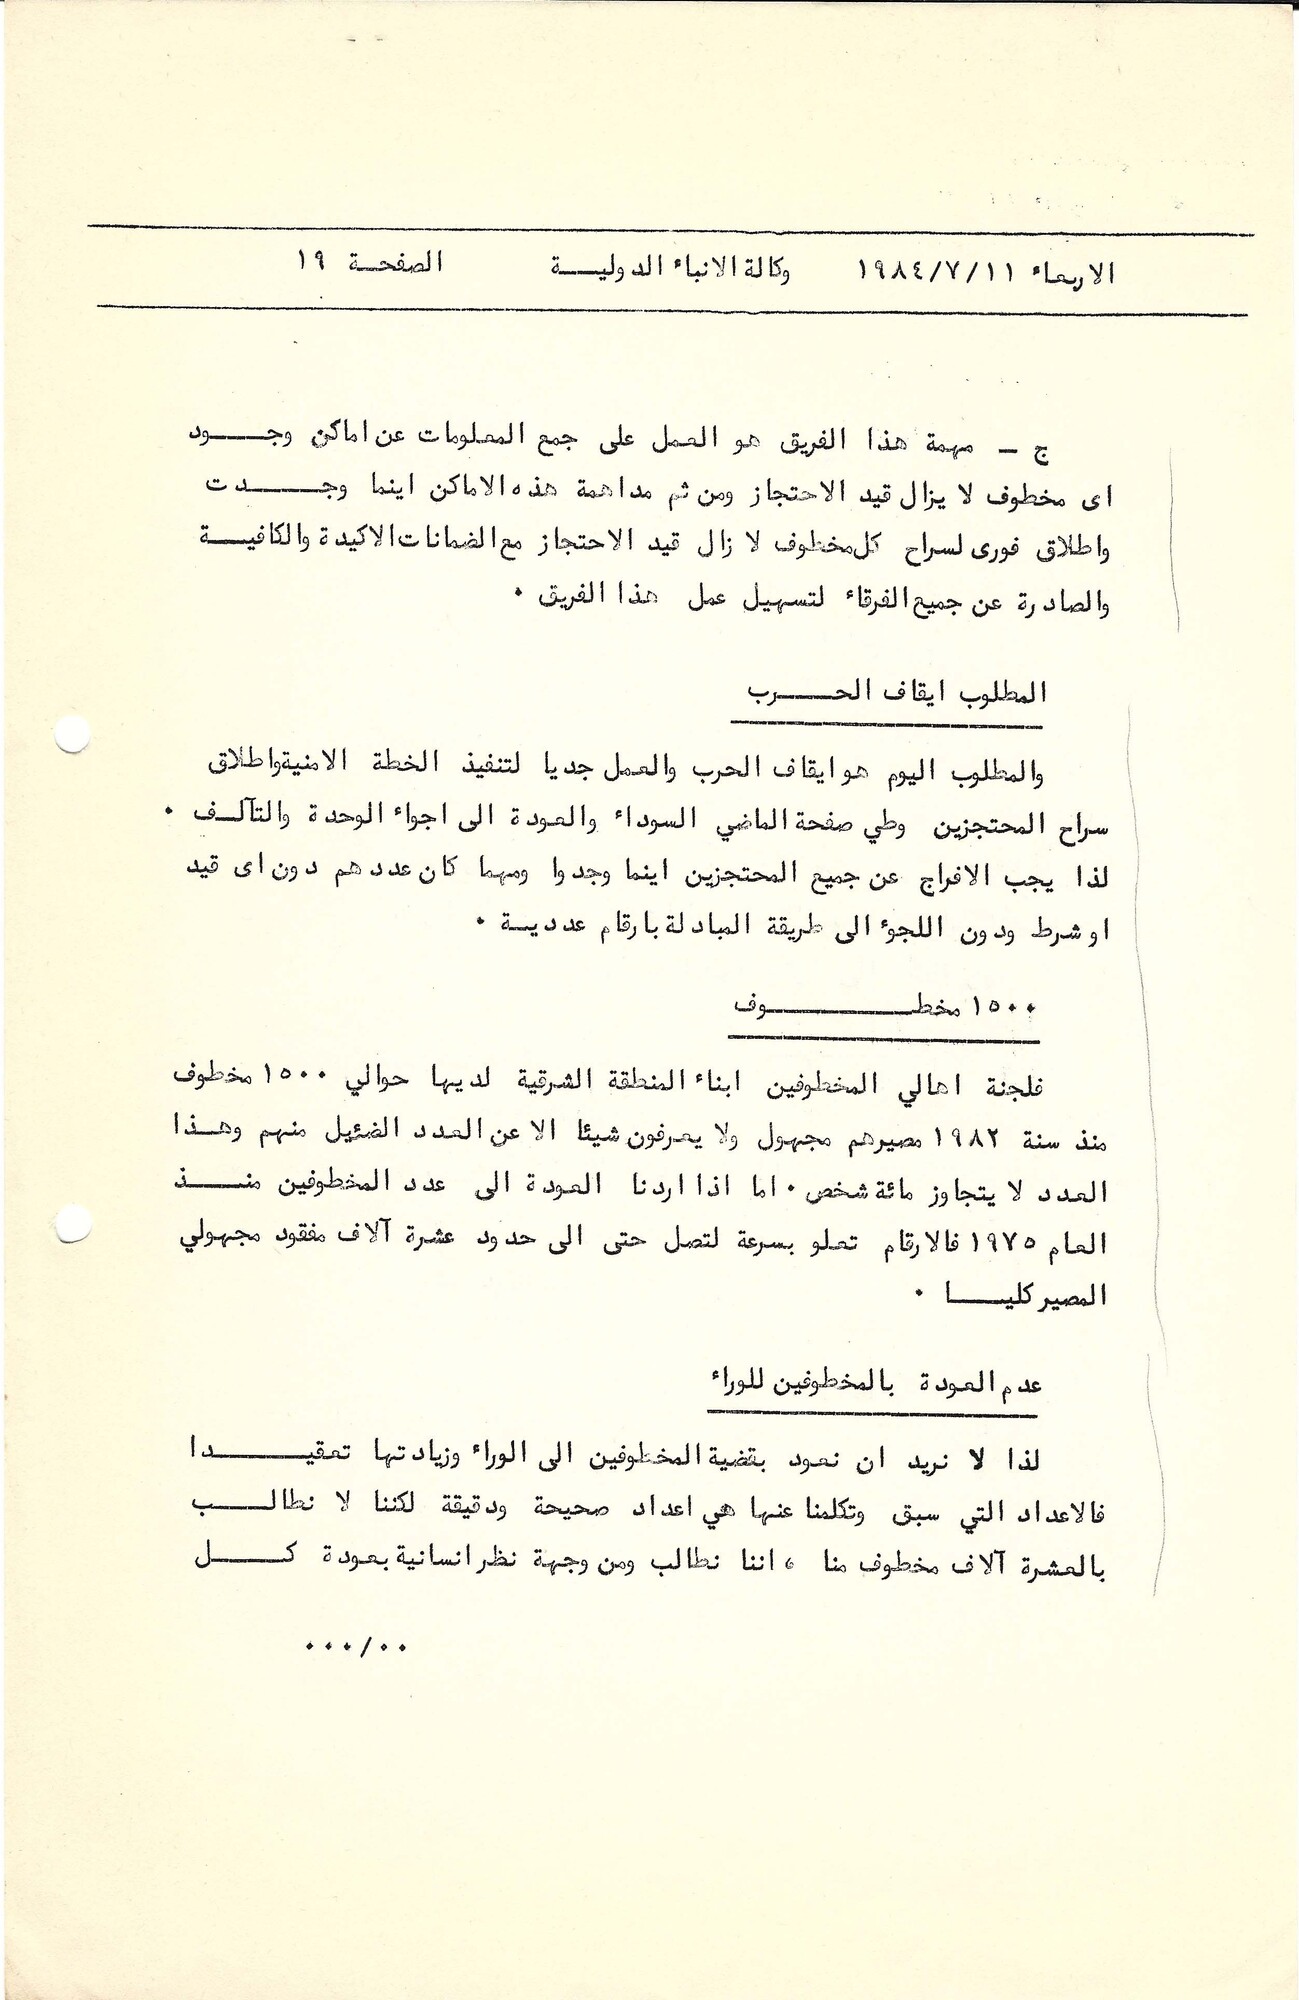 الاربعاء ١٩٨٤/٧/١١ وكالة الانباء الدولية الصفحة ١٩
ج - مهمة هذا الفريق هو العمل على جمع المعلومات عن اماكن وجود
اى مخطوف لا يزال قيد الاحتجاز ومن ثم مداهمة هذه الاماكن اينما وجدت
واطلاق فورى لسراح كل مخطوف لا زال قيد الاحتجاز مع الضمانات الاكيدة والكافية
والصادرة عن جميع الفرقاء لتسهيل عمل هذا الفريق ٠
المطلوب ايقاف الحرب
والمطلوب اليوم هو ايقاف الحرب والعمل جديا لتنفيذ الخطة الامنية واطلاق
سراح المحتجزين وطي صفحة الماضي السوداء والعودة الى اجواء الوحدة والتآلف ٠
لذا يجب الافراج عن جميع المحتجزين اينما وجدوا ومهما كان عددهم دون اى قيد
او شرط ودون اللجوء الى طريقة المبادلة بارقام عددية ٠
١٥٠٠ مخطوف
فلجنة اهالي المخطوفين ابناء المنطقة الشرقية لديها حوالي ١٥٠٠ مخطوف
منذ سنة ١٩٨٢ مصيرهم مجهول ولا يعرفون شيئا الا عن العدد الضئيل منهم وهذا
العدد لا يتجاوز مائة شخص ٠ اما اذا اردنا العودة الى عدد المخطوفين منذ
العام ١٩٧٥ فالارقام تعلو بسرعة لتصل حتى الى حدود عشرة آلاف مفقود مجهولي
المصير كليا ٠
عدم العودة بالمخطوفين للوراء
لذا لا نريد ان نعود بقضية المخطوفين الى الوراء وزيادتها تعقيدا
فالاعداد التي سبق وتكلمنا عنها هي اعداد صحيحة ودقيقة لكننا لا نطالب
بالعشرة آلاف مخطوف منا ، اننا نطالب ومن وجهة نظر انسانية بعودة كل
٠٠/٠٠٠